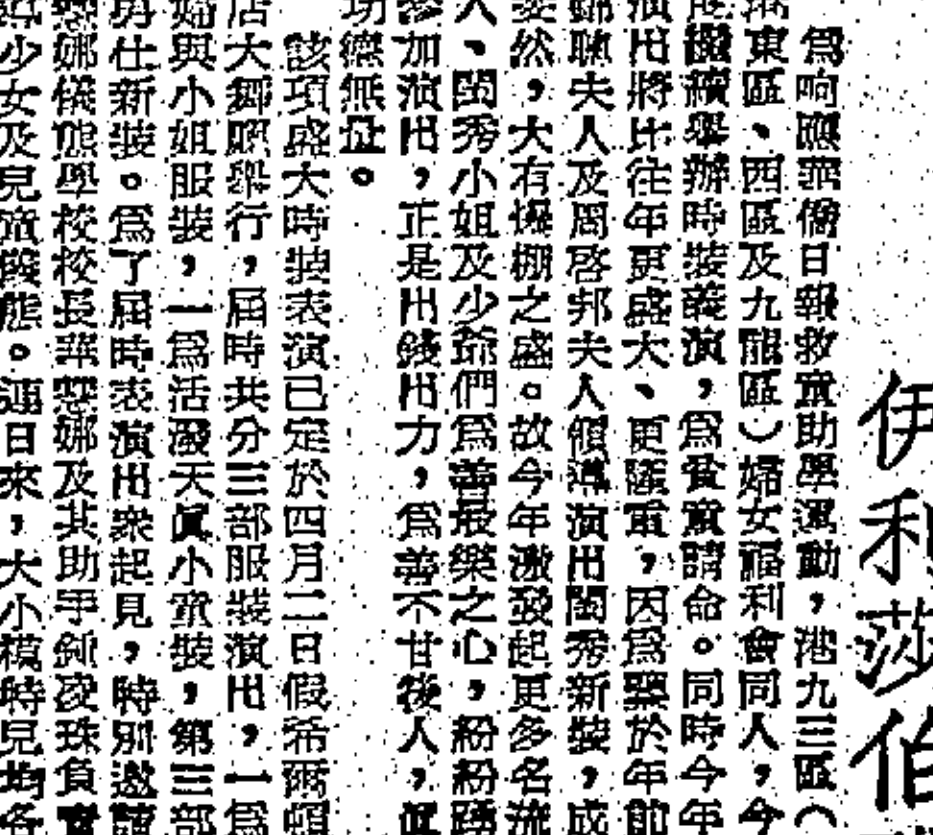 伊利莎伯
爲响應華僑日報救童助學運動,港九三區(
東區、西區及九龍區)婦女福利會同人,今
繼續舉辦時裝義演,爲貧童請命。同時今年
演出將比往年更盛大、更隆重,因爲鑒於年前
錦聰夫人及周啓邦夫人領導演出閨秀新裝,成
斐然,大有爆棚之盛。故今年激發起更多名流
人、閨秀小姐及少爺們爲善最樂之心,紛紛踴
參加演出,正是出錢出力,爲善不甘後人,眞
功德無量。
該項盛大時裝表演已定於四月二日假希爾頓
店大舉行,屆時共分三部服裝演出,一爲
婦與小姐服裝,一爲活潑天眞小童裝,第三部
仕新裝。爲了屆時表演出衆起見,特別邀請
娜儀態學校校長華慧娜及其助手劉凌珠負責
少女及兒童儀態。連日來,大小模特兒均各